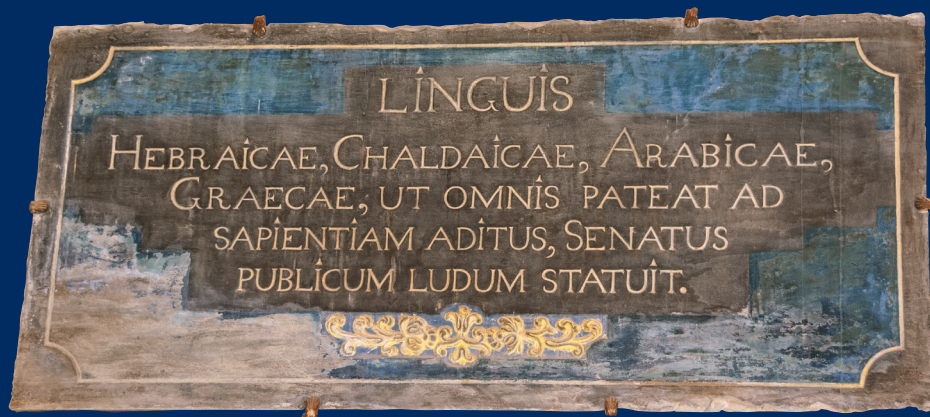 LINGUIS
HEBRAICAE, CHALDAICAE, ARABICAE,
GRAECAE, UT OMNIS PATEAT AD
SAPIENTIAM ADITUS, SENATUS
PUBLICUM LUDUM STATUIT.